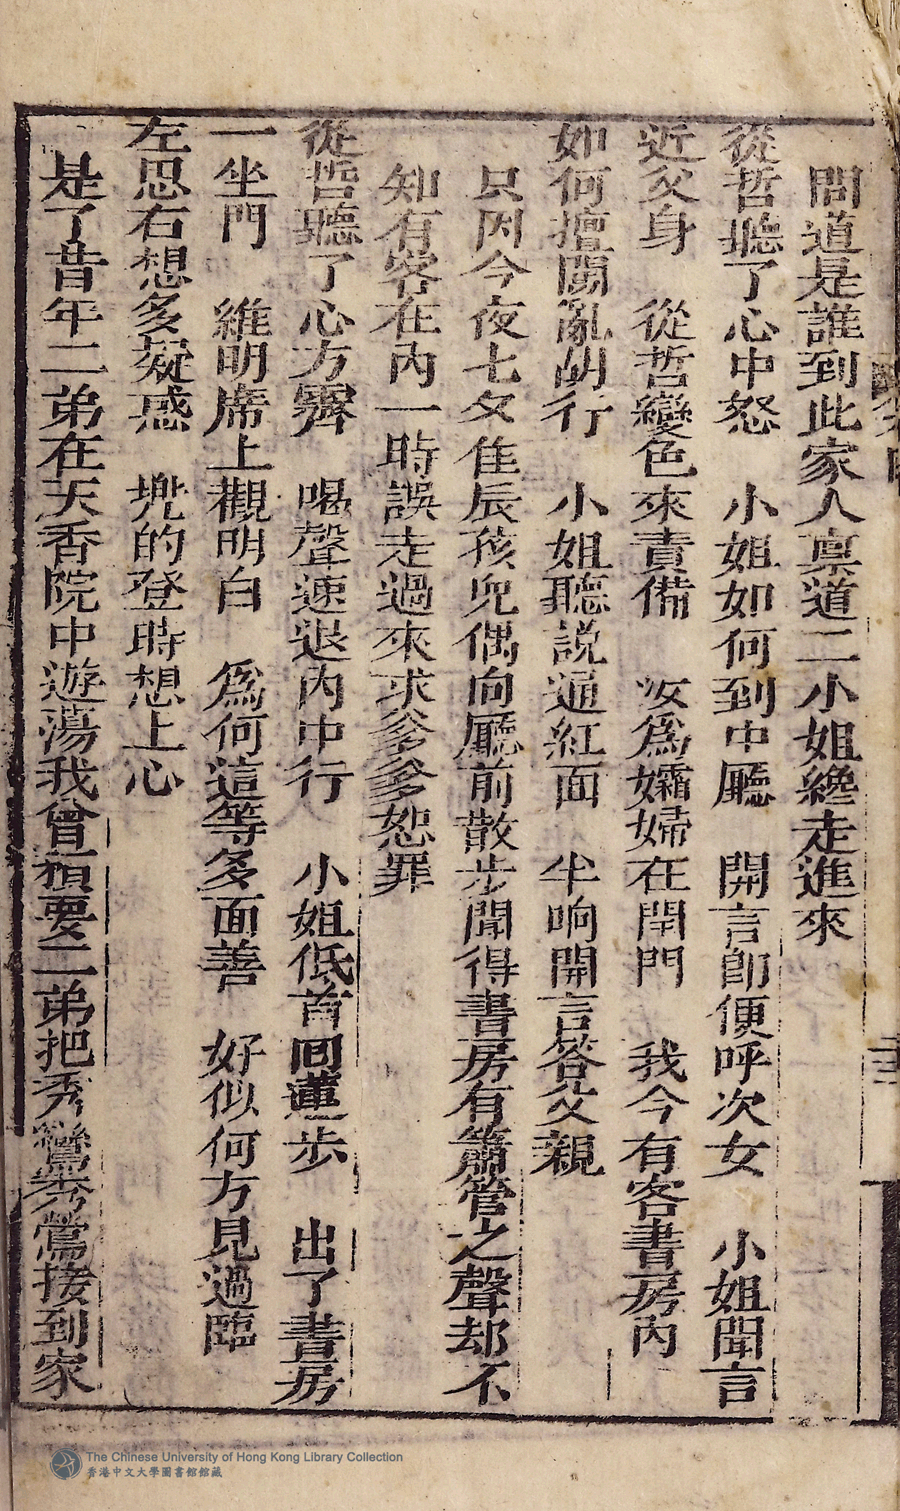 問道是誰到此家人禀道二小姐纔走進來
從哲聽了心中怒　小姐如何到中廳　開言卽便呼次女　小姐聞言
近父身　從哲變色來責備　汝爲孀婦在閨門　我今有客書房內
如何擅闖亂胡行　小姐聽説通紅面　半晌開言答父親
只因今夜七夕佳辰孩兒偶向廳前散步聞得書房有簫管之聲却不
知有客在內一時誤走過來求爹爹恕罪
從哲聽了心方霽　喝聲速退內中行　小姐低首回蓮步　出了書房
一坐門　維明席上觀明白　爲何這等多面善　好似何方見過臨
左思右想多疑惑　兠的登時想上心
是了昔年二弟在天香院中遊蕩我曾頭要二弟把秀鸞秀鶯接到家
The Chinese University of Hong Kong Library Collection
香港中文大學圖書館館藏